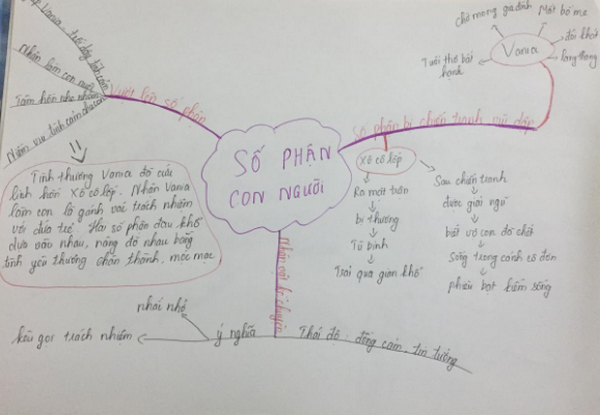 SỐ PHẬN
CON NGƯỜI
Vươn lên số phận
Vania, trỗi dậy tình cảm
Nhận làm con nuôi
Tâm hồn nhẹ nhõm
Niềm vui tình cảm cha con
Tình thương Vania đã cứu
linh hồn Xô cô lốp. Nhận Vania
làm con là gánh vai trách nhiệm
với đứa trẻ. Hai số phận đau khổ
dựa vào nhau, nâng đỡ nhau bằng
tình yêu thương chân thành, mộc mạc
Số phận bị chiến tranh vùi dập
Vania
chờ mong gia đình
Mất bố mẹ
đói khát
lang thang
Tuổi thơ bất
hạnh
Xô cô lốp
Ra mặt trận
bị thương
Tù binh
Trải qua gian khổ
Sau chiến tranh
được giải ngũ
biết vợ con đã chết
Sống trong cảnh cô đơn
phiêu bạt kiếm sống
Nhân vật kể chuyện
Thái độ: đồng cảm, tin tưởng
ý nghĩa
nhắc nhở
kêu gọi trách nhiệm